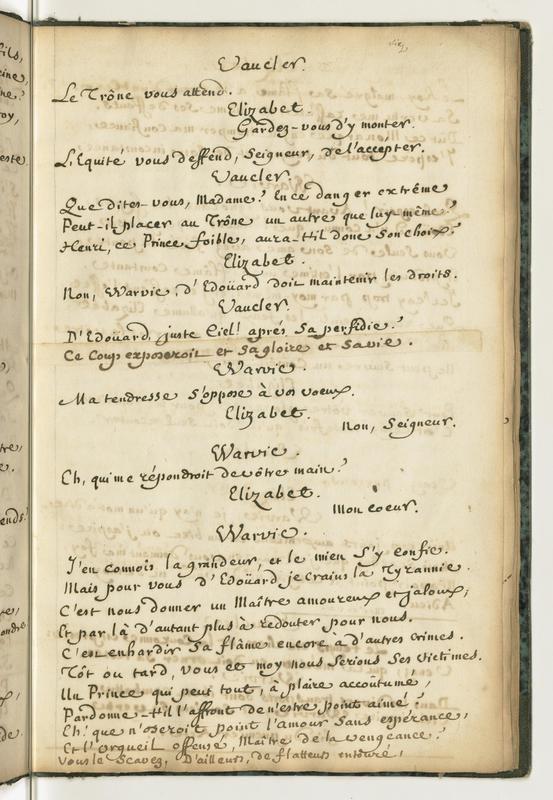 Vaucler.
Le Trône vous attend.
Elizabet.
Gardez-vous d'y monter.
L'Equité vous deffend, Seigneur, de l'accépter.
Vaucler.
Que dites-vous, Madame? En ce danger extrême
Peut-il placer au Trône un autre que luy-même?
Henri, ce Prince foible, aura-t-il donc son choix?
Elizabet.
Non, Warvic, d'Edoüard doit maintenir les droits.
Vaucler.
D'Edoüard, juste Ciel! aprés sa perfidie?
Ce Coup exposeroit et sa gloire et sa vie.
Warvic.
Ma tendresse s'oppose à vos voeux.
Elizabet.
Non, Seigneur.
Warvic.
Eh, qui me répondroit de vôtre main?
Elizabet.
Mon coeur.
Warvic.
J'en connois la grandeur, et le mien s'y confie.
Mais pour vous d'Edoüard je crains la Tyrannie.
C'est nous donner un Maître amoureux et jaloux,
Et par là d'autant plus à redouter pour nous.
C'est enhardir sa flâme encore à d'autres crimes.
Tôt ou tard, vous et moy nous serions ses victimes.
Un Prince qui peut tout, à plaire accoûtumé,
Pardonne-t-il l'affront de n'estre point aimé?
Eh! que n'oseroit point l'amour sans espérance,
Et l'orgueil offensé, Maître de la vengeance?
Vous le Scavez, D'ailleurs, de flatteurs entouré,